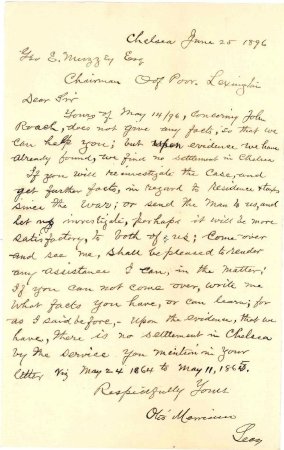 Chelsea June 25 1896
Geo E. Muzzey Esq
Chairman O of Poor. Lexington
Dear Sir
Yours of May 14/96, concerning John
Roach, does not give any facts, so that we
can help you; but upon evidence we have
already found, we find no settlement in Chelsea
If you will reinvestigate the case, and
get further facts, in regard to Residence & taxes
since the War; or send the Man to us, and
let us investigate, perhaps it will be more
satisfactory to both of us; Come over
and see me, shall be pleased to render
any assistance I can, in the matter;
If you can not come over, write me
what facts you have, or can learn; for
as I said before, - Upon the evidence, that we
have, there is no settlement in Chelsea
by the service you mention in your
letter. Viz May 24 1864 to May 11, 1865.
Respectfully Yours
Otis Merriam